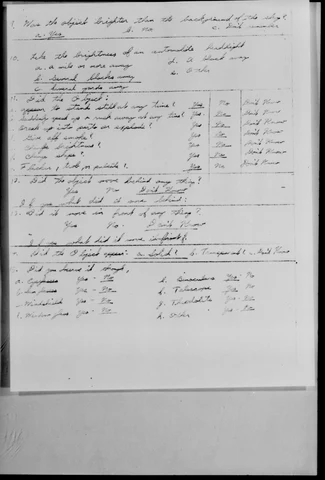 9. Was the object brighter than the background of the sky?
a. Yes b. No c. Don't
10. Like the brightness of an automobile headlight
a. a mile or more away d. a block away
b. Several blocks away e. Other
c. Several yards away
11. Did the Object:
Appear to stand still at any time? Yes No Don't Know
Suddenly speed up or rush away at any time? Yes No Don't Know
Break up into parts or explode? Yes No Don't Know
Give off smoke? Yes No Don't Know
Change brightness? Yes No Don't Know
Change shape? Yes No Don't Know
Flicker, or pulsate? Yes No Don't Know
12. Did the object move behind any thing?
Yes No Don't Know
If yes what did it move behind?
13. Did it move in front of any thing?
Yes No Don't Know
If yes what did it move in front of?
Did the Object appear: a. Solid? b. Transparent? c. Don't Know
Did you observe it through,
a. Eyeglasses Yes - No e. Binoculars Yes - No
b. Sun glasses Yes - No f. Telescope Yes - No
c. Windshield Yes - No g. Theodolite Yes - No
d. Window glass Yes - No h. Other